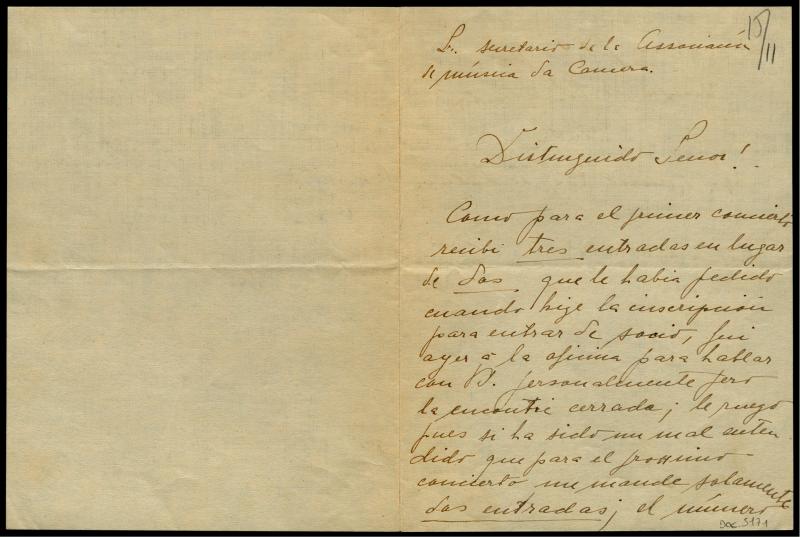 15/11
Sr. secretario de la Associación
de música da Camera.
Distinguido Senor!
Como para el primer concierto
recibi tres entradas en lugar
de dos que le habia pedido
cuando hize la inscripción
para entrar de socio, fui
ayer á la oficina para hablar
con V. personalmente pero
la encontré cerrada; le ruego
pues si ha sido un mal enten
dido que para el prossimo
concierto me mande solamente
dos entradas; el número
DOC. 5171